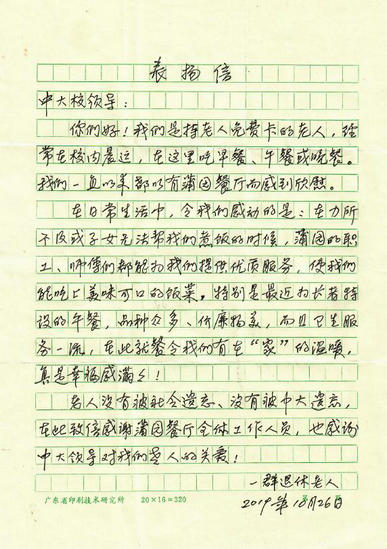 表扬信
中大校领导:
你们好!我们是持老人免费卡的老人,经
常在校内晨运,在这里吃早餐、午餐或晚餐。
我们一直以来都以有蒲园餐厅而感到欣慰。
在日常生活中,令我们感动的是:在力所
不及或子女无法帮我们煮饭的时候,蒲园的职
工、师傅们都能为我们提供优质服务,使我们
能吃上美味可口的饭菜。特别是最近为长者特
设的午餐,品种众多、价廉物美,而且卫生服
务一流,在此就餐令我们有在“家”的温暖,
真是幸福感满满!
老人没有被社会遗忘、没有被中大遗忘,
在此致信感谢蒲园餐厅全体工作人员,也感谢
中大领导对我们老人的关爱!
一群退休老人
2019年10月26日
广东省印刷技术研究所 20×16=320